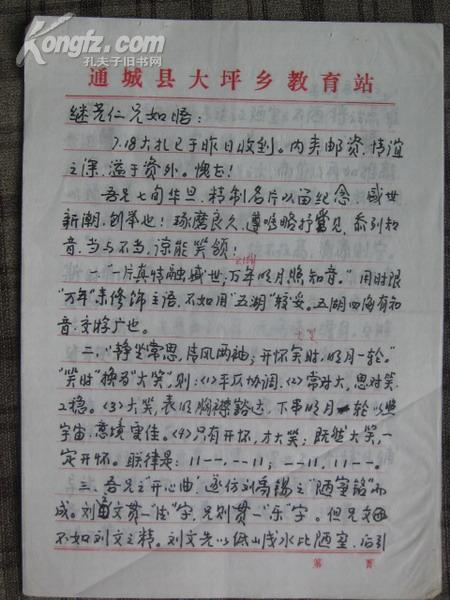 Kongfz.com
孔夫子旧书网
通城县大坪乡教育站
继尧仁兄如悟:
7.18大札已于昨日收到。内夹邮资,情谊
之深,溢于资外。愧甚!
吾兄七旬华旦,精制名片以留纪念,盛世
新潮,创举也!琢磨良久,遵嘱略抒管见,忝列知
音,当与不当,谅能笑领!
五湖
一、“一片真情融盛世,万年明月照知音。”用时限
“万年”来修饰主语,不如用“五湖”较妥。五湖四海有知
音,交游广也。
大笑
二、“静坐常思,清风两袖;开怀笑时,明月一轮。”
“笑时”换为“大笑”,则:(1)平仄协调,(2)常对大,思对笑,
工稳。(3)大笑,表明胸襟豁达,下串明月一轮以照
宇宙,意境更佳。(4)只有开怀,才大笑;既然大笑,一
定开怀。联律是:11--,--11;--11,11--。
三、吾兄之“开心曲”,逐仿刘禹锡之“陋室铭”而
成。刘文贯一“德”字,兄则贯一“乐”字。但兄曲
不如刘文之精。刘文先以低山浅水比陋室,后引
第 页